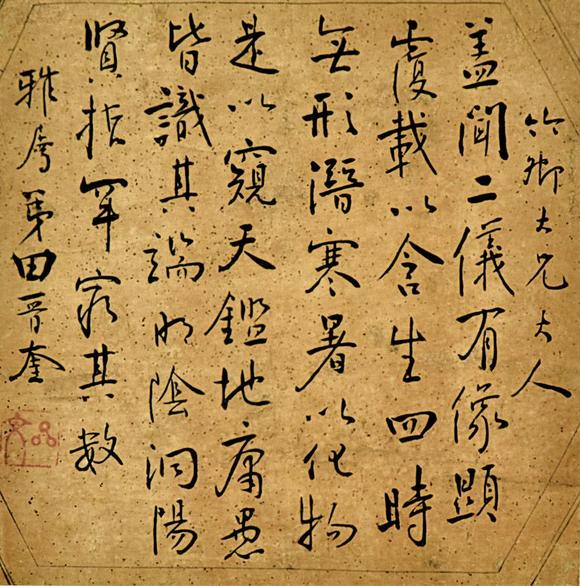 竹卿大兄大人
盖聞二儀有像顯
覆載以含生四時
無形潛寒暑以化物
是以窺天鑑地庸愚
皆識其端明陰洞陽
賢哲罕窮其數
雅屬弟田晋奎